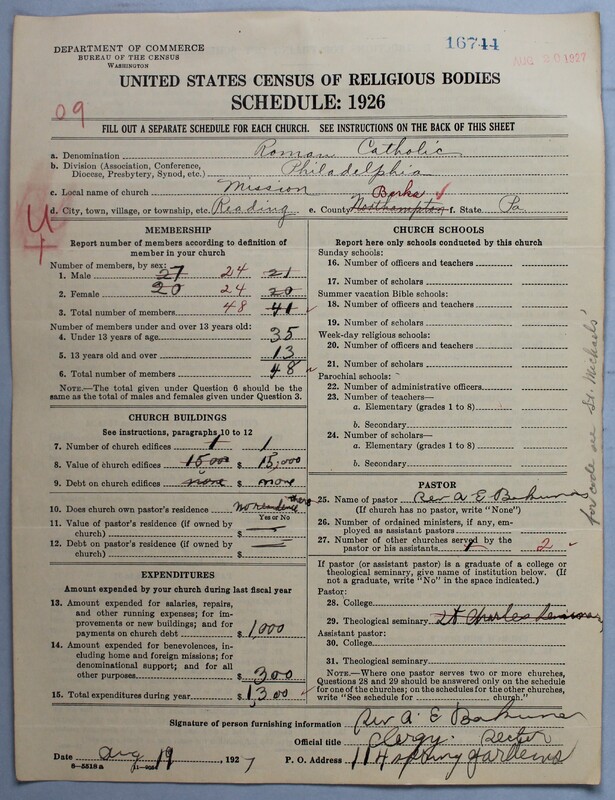 DEPARTMENT OF COMMERCE
BUREAU OF THE CENSUS
WASHINGTON
16744
AUG 20 1927
UNITED STATES CENSUS OF RELIGIOUS BODIES
SCHEDULE: 1926
09
FILL OUT A SEPARATE SCHEDULE FOR EACH CHURCH. SEE INSTRUCTIONS ON THE BACK OF THIS SHEET
a. Denomination Roman Catholic
b. Division (Association, Conference, Diocese, Presbytery, Synod, etc.) Philadelphia
c. Local name of church Mission
Berks
d. City, town, village, or township, etc. Reading e. County Northampton f. State Pa
MEMBERSHIP
Report number of members according to definition of
member in your church
Number of members, by sex:
1. Male 27 24 21
2. Female 20 24 20
3. Total number of members 48 41
Number of members under and over 13 years old:
4. Under 13 years of age 35
5. 13 years old and over 13
6. Total number of members 48
NOTE.—The total given under Question 6 should be the
same as the total of males and females given under Question 3.
CHURCH BUILDINGS
See instructions, paragraphs 10 to 12
7. Number of church edifices 1 1
8. Value of church edifices 15,000 $ 15,000
9. Debt on church edifices none $ none
10. Does church own pastor's residence no residence there
Yes or No
11. Value of pastor's residence (if owned by
church) $
12. Debt on pastor's residence (if owned by
church) $
EXPENDITURES
Amount expended by your church during last fiscal year
13. Amount expended for salaries, repairs,
and other running expenses; for im-
provements or new buildings; and for
payments on church debt $ 1,000
14. Amount expended for benevolences, in-
cluding home and foreign missions; for
denominational support; and for all
other purposes $ 300
15. Total expenditures during year $ 1,300
CHURCH SCHOOLS
Report here only schools conducted by this church
Sunday schools:
16. Number of officers and teachers
17. Number of scholars
Summer vacation Bible schools:
18. Number of officers and teachers
19. Number of scholars
Week-day religious schools:
20. Number of officers and teachers
21. Number of scholars
Parochial schools:
22. Number of administrative officers
23. Number of teachers—
a. Elementary (grades 1 to 8)
b. Secondary
24. Number of scholars—
a. Elementary (grades 1 to 8)
b. Secondary
for code see St. Michaels'
PASTOR
25. Name of pastor Rev A E
(If church has no pastor, write "None")
26. Number of ordained ministers, if any, em-
ployed as assistant pastors
27. Number of other churches served by the
pastor or his assistants 1 2
If pastor (or assistant pastor) is a graduate of a college or
theological seminary, give name of institution below. (If
not a graduate, write "No" in the space indicated.)
Pastor:
28. College
29. Theological seminary St Charles Seminary
Assistant pastor:
30. College
31. Theological seminary
NOTE.—Where one pastor serves two or more churches,
Questions 28 and 29 should be answered only on the schedule
for one of the churches; on the schedules for the other churches,
write "See schedule for church."
Signature of person furnishing information Rev A. E
Official title Clergy. Rector
Date Aug 19, 1927 P. O. Address 114 Spring Gardens
8-5518 a